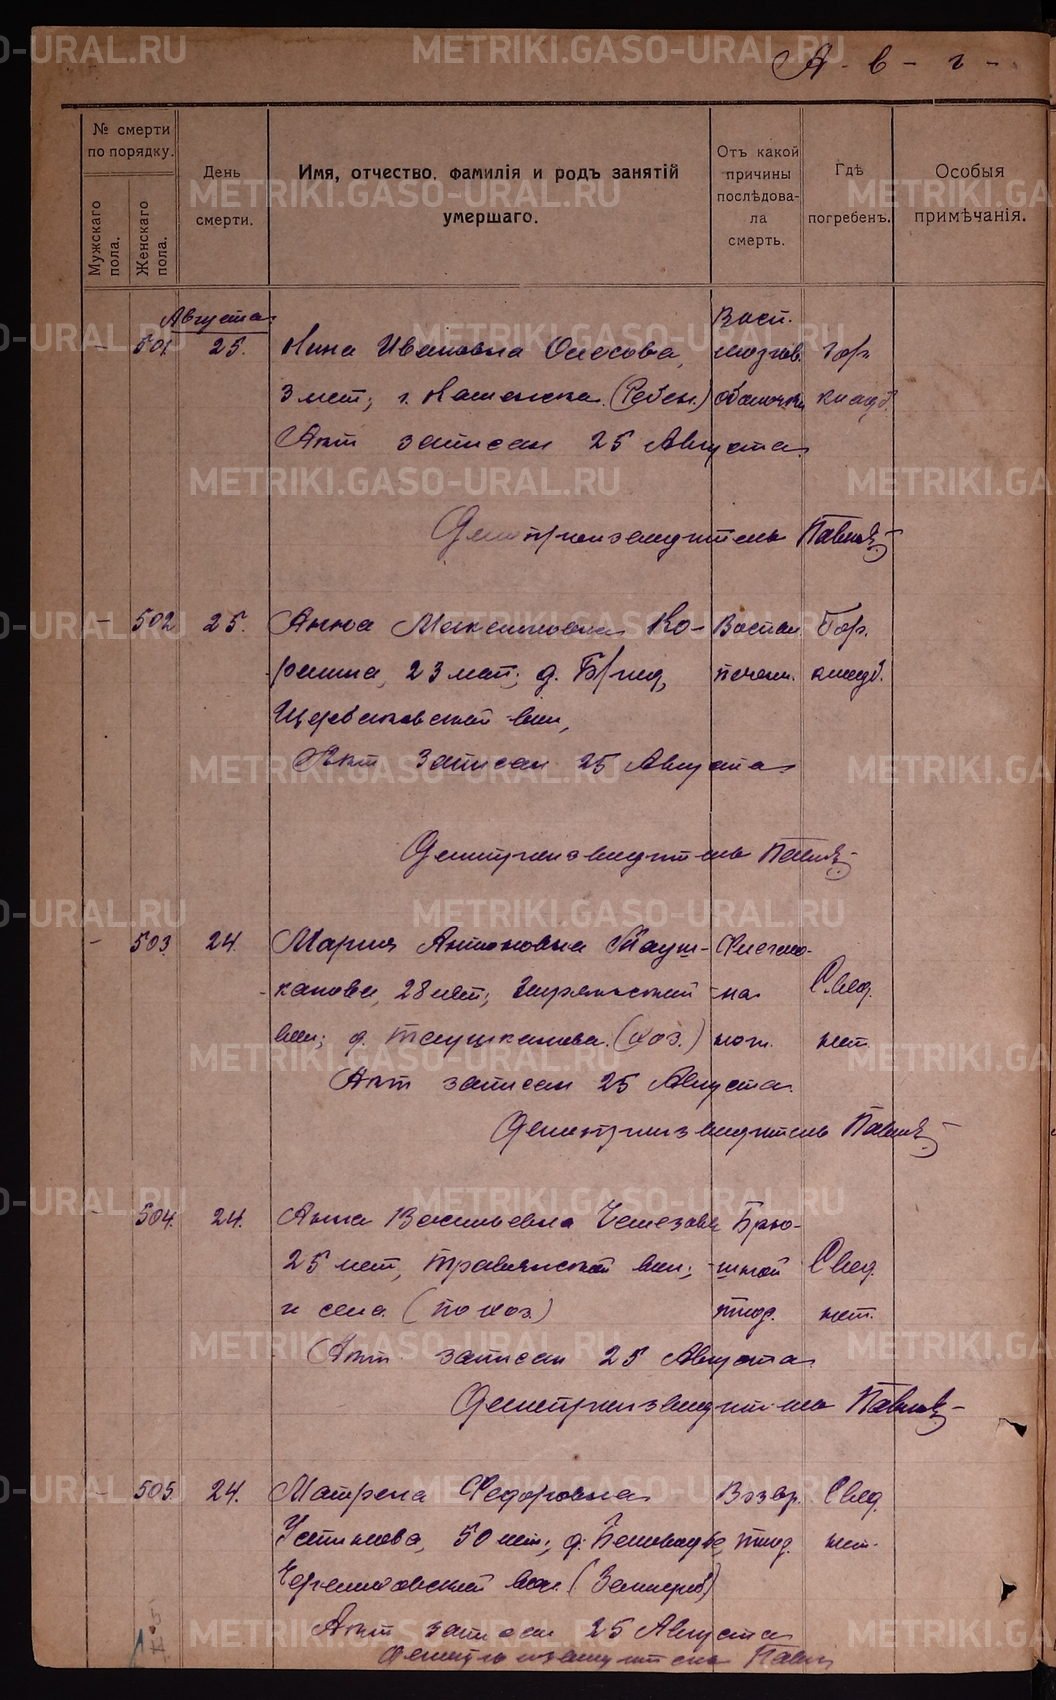 А - в - г -
№ смерти по порядку.
Мужскаго пола.
Женскаго пола.
День смерти.
Имя, отчество, фамилія и родъ занятій умершаго.
Отъ какой причины послѣдовала смерть.
Гдѣ погребенъ.
Особыя примѣчанія.
Августа
Восп.
- 501. 25. Нина Ивановна мозгов. Гор.
3 лет; г. (Ребен.) оболочки кладб.
Акт записан 25 Августа
Делопроизводитель
- 502 25. Анна Максимовна Ко- Воспал. Гор.
23 лет; д. кладб.
Щербаковской вол,
Акт записан 25 Августа
Делопроизводитель
- 503. 24. Мария Антоновна Тауш- Флегмо-
канова, 28 лет; -на Свед.
вол; д. Таушканова. (хоз.) ног. нет
Акт записан 25 Августа
Делопроизводитель
- 504. 24. Анна Васильевна Брю-
25 лет, Травянской вол; -шной Свед.
и села (по хоз.) тиф. нет.
Акт записан 25 Августа
Делопроизводитель
- 505. 24. Матрена Федоровна Возвр. Свед.
Устинова, 50 лет; д. тиф. нет.
вол
Акт записан 25 Августа
Делопроизводитель
METRIKI.GASO-URAL.RU